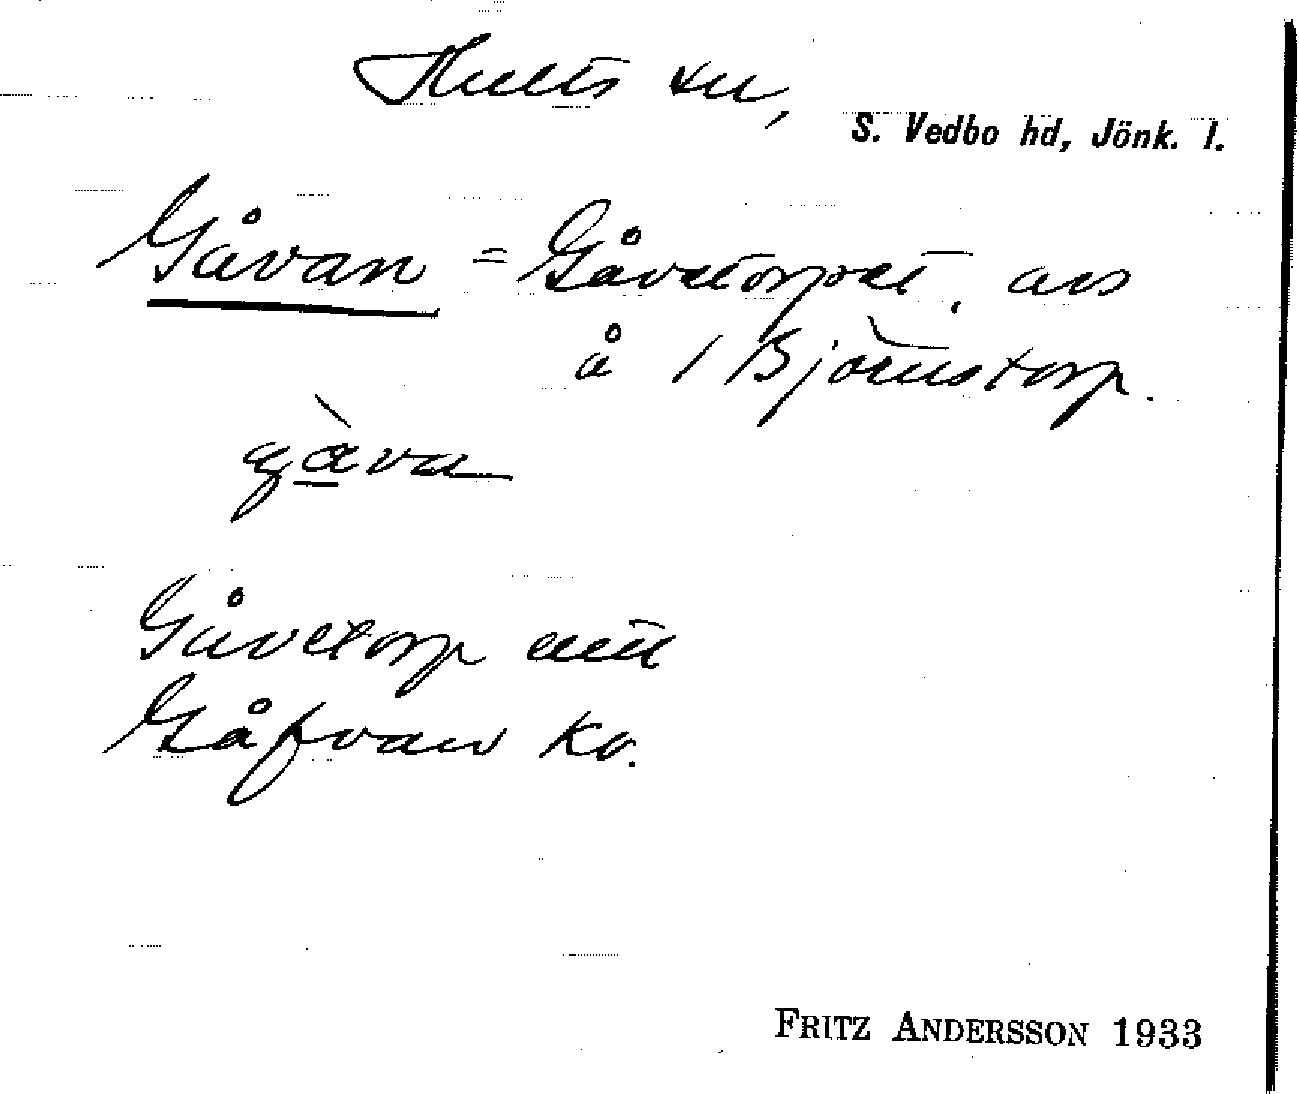 Hults sn,
S. Vedbo hd, Jönk. l.
Gåvan = Gåvetorpet, avs
å 1 Björnstorp.
gàva
Gåvetorp
Gåfvan Kv.
FRITZ ANDERSSON 1933